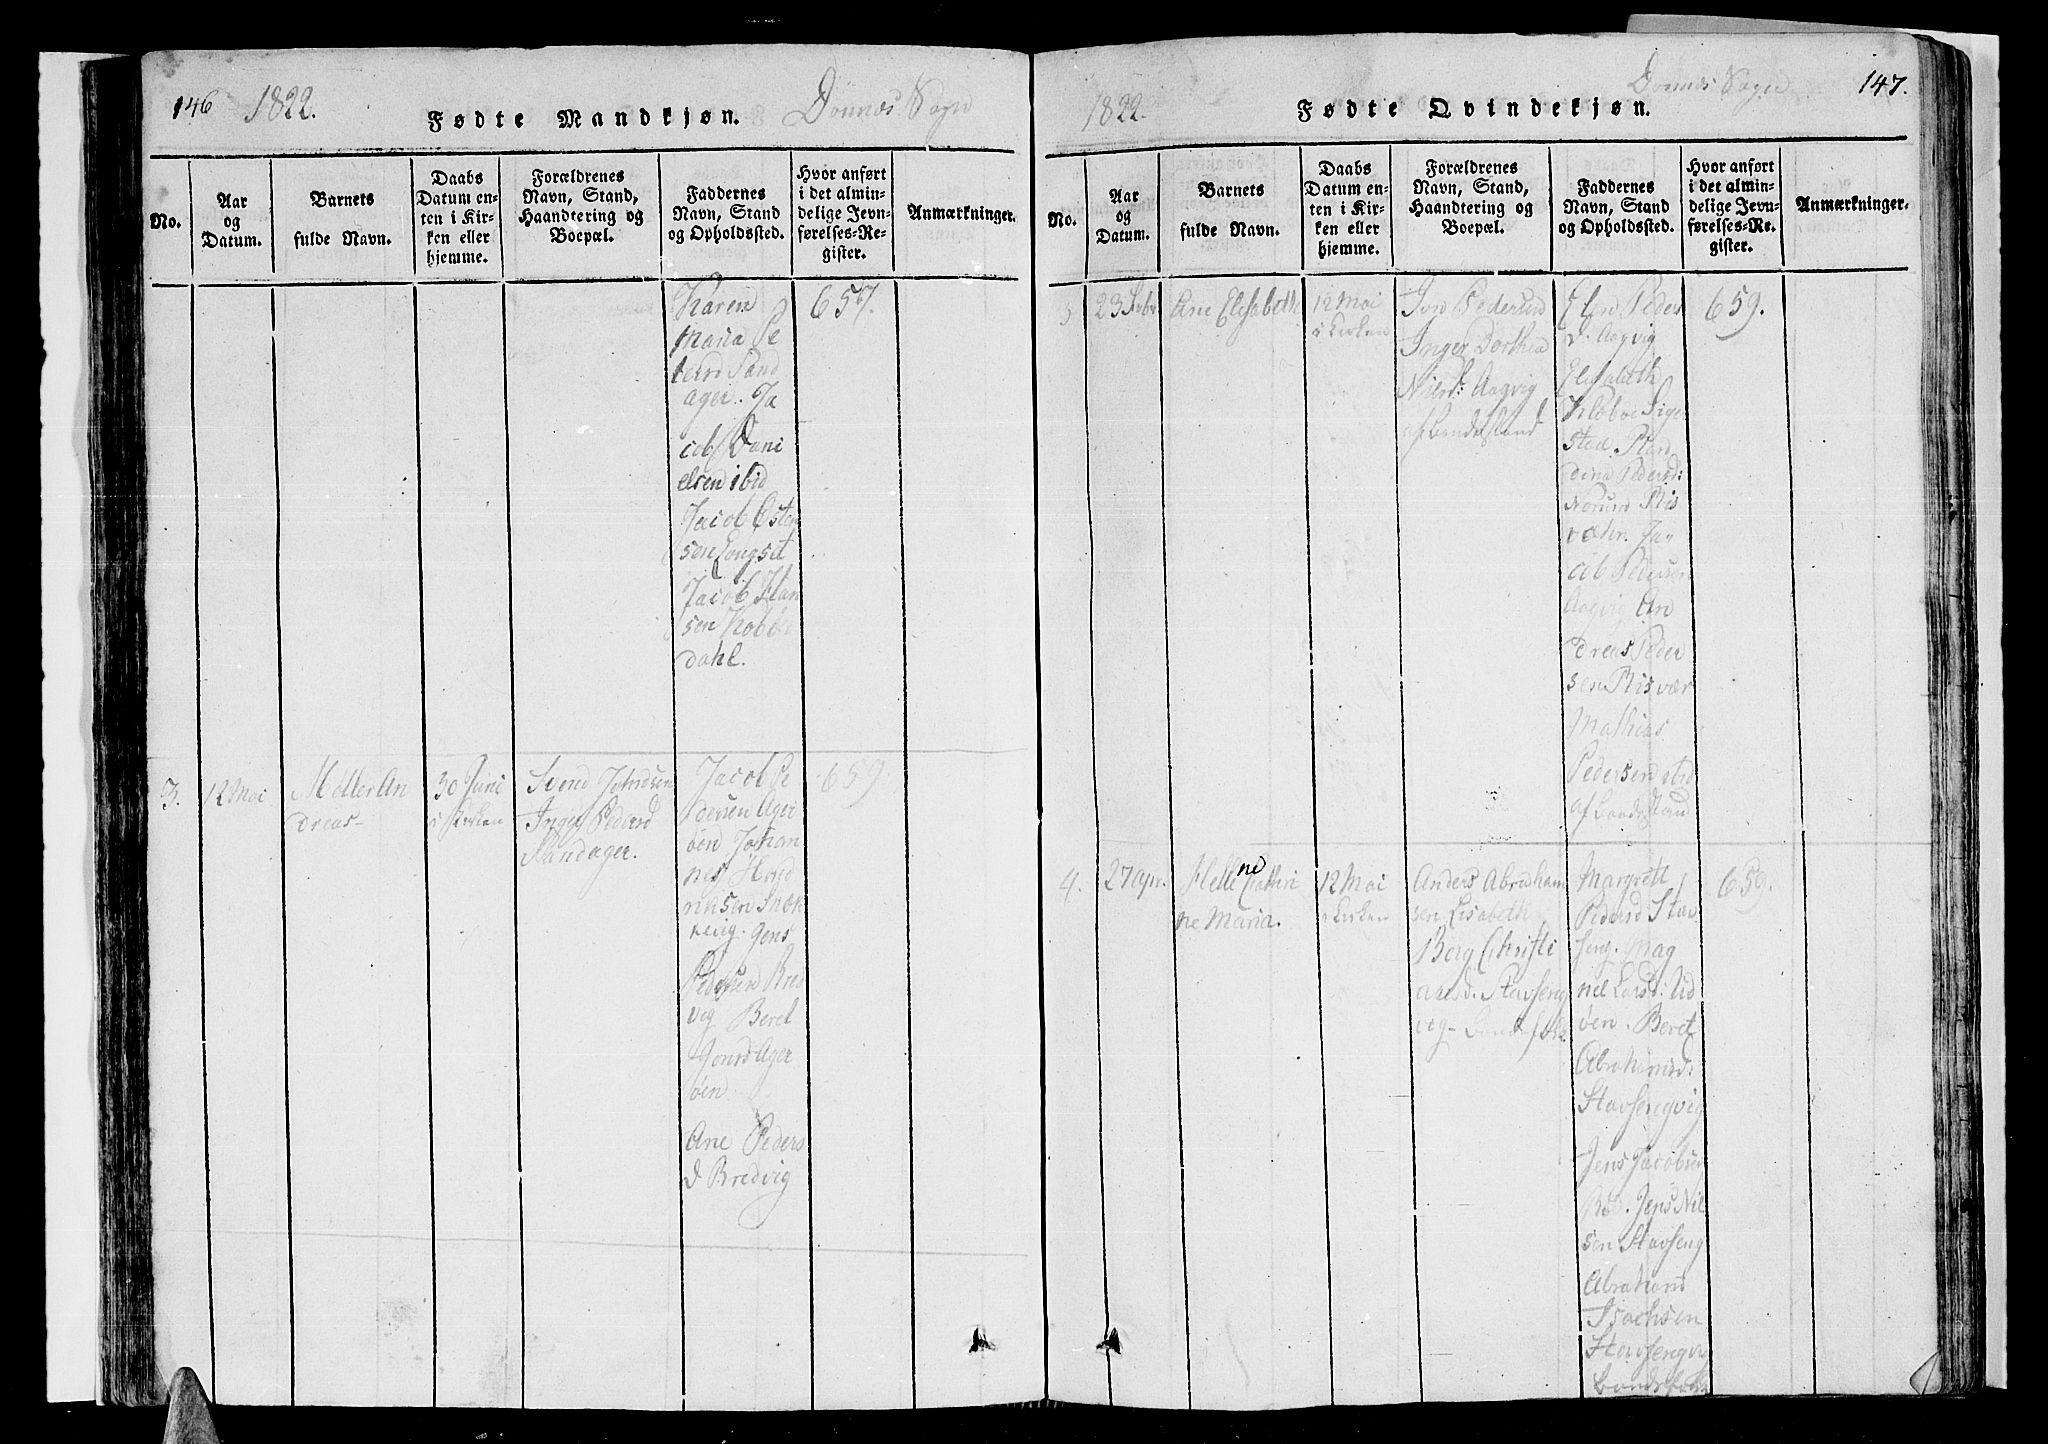 146 1822. Fødte Mandkjøn. Dönnæs Sogn
No.
Aar
og
Datum.
Barnets
fulde Navn.
Daabs
Datum en-
ten i Kir-
ken eller
hjemme.
Forældrenes
Navn, Stand,
Haandtering og
Boepæl.
Faddernes
Navn, Stand
og Opholdssted.
Hvor anført
i det almin-
delige Jevn-
førelses-Re-
gister.
Anmærkninger.
Karen
Maria Pe
Sand
ager. Ja
cob Dani
elsen ibid
Jacob Østen
sen
Jacob Han
sen
dahl.
657.
3.
12 Mai
Møller An
dreas-
30 Juni
i Kirken
Svend Johnsen
Inger Pedersd
Sandager.
Jacob Pe
dersen Ager
öen Johan
nes Hend
riksen
Jens
Pedersen Bred
vig Beret
Jonsd Ager
öen.
Ane Peders
d Bredvig
659.
1822. Fødte Qvindekjøn. Dönnæs Sogn 147.
No.
Aar
og
Datum.
Barnets
fulde Navn.
Daabs
Datum en-
ten i Kir-
ken eller
hjemme.
Forældrenes
Navn, Stand,
Haandtering og
Boepæl.
Faddernes
Navn, Stand
og Opholdssted.
Hvor anført
i det almin-
delige Jevn-
førelses-Re-
gister.
Anmærkninger.
3
23 Febr
Ane Elisabeth
12 Mai
i Kirken
Jon Pedersen
Inger Dorthea
Nilsd: Aagvig
af Bondestand
Elen Peders
d. Aagvig
Elisabeth
Sige
sted
dina Pedersd:
Ris
Ja-
cob Pedersen
Aagvig An
dreas Peder
sen Risvær
Mathias
Pedersen ibid
af Bondestand
659.
4.
27 apr.
Hellene Cathri
ne Maria.
12 Mai
i Kirken
Anders Abraham
sen Lisabeth
Borg Christi
ansd. Stavseng
vig- Bondefolk
Margrett
Pedersd Stav
seng. Mag
nel Larsd: Ud
öen. Beret
Abrahamsd:
Stavsengvig
Jens Jacobsen
Jens Nil
sen Stavseng
Abraham
Isachsen
Stavsengvig
Bondefolk
659.